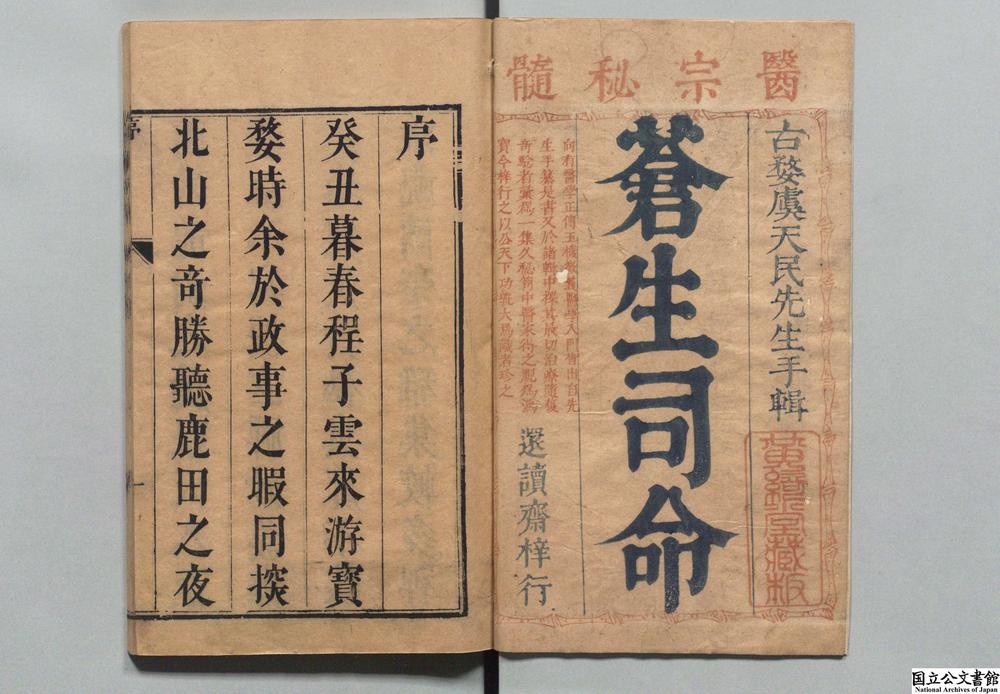 醫宗秘髓
古婺虞天民先生手輯
藏板
蒼生司命
向有醫學正傳玉機微義醫學入門皆出自先
生手纂是書又於諸輯中採其最切治療隨
奇驗者彙爲一集久秘笥中醫家得之視爲鴻
寶今梓行之以公天下功大焉識者珍之
還讀齋梓行
序
癸丑暮春程子雲來游寶
婺時余於政事之暇同探
北山之奇勝聽鹿田之夜
序
一
国立公文書館
National Archives of Japan